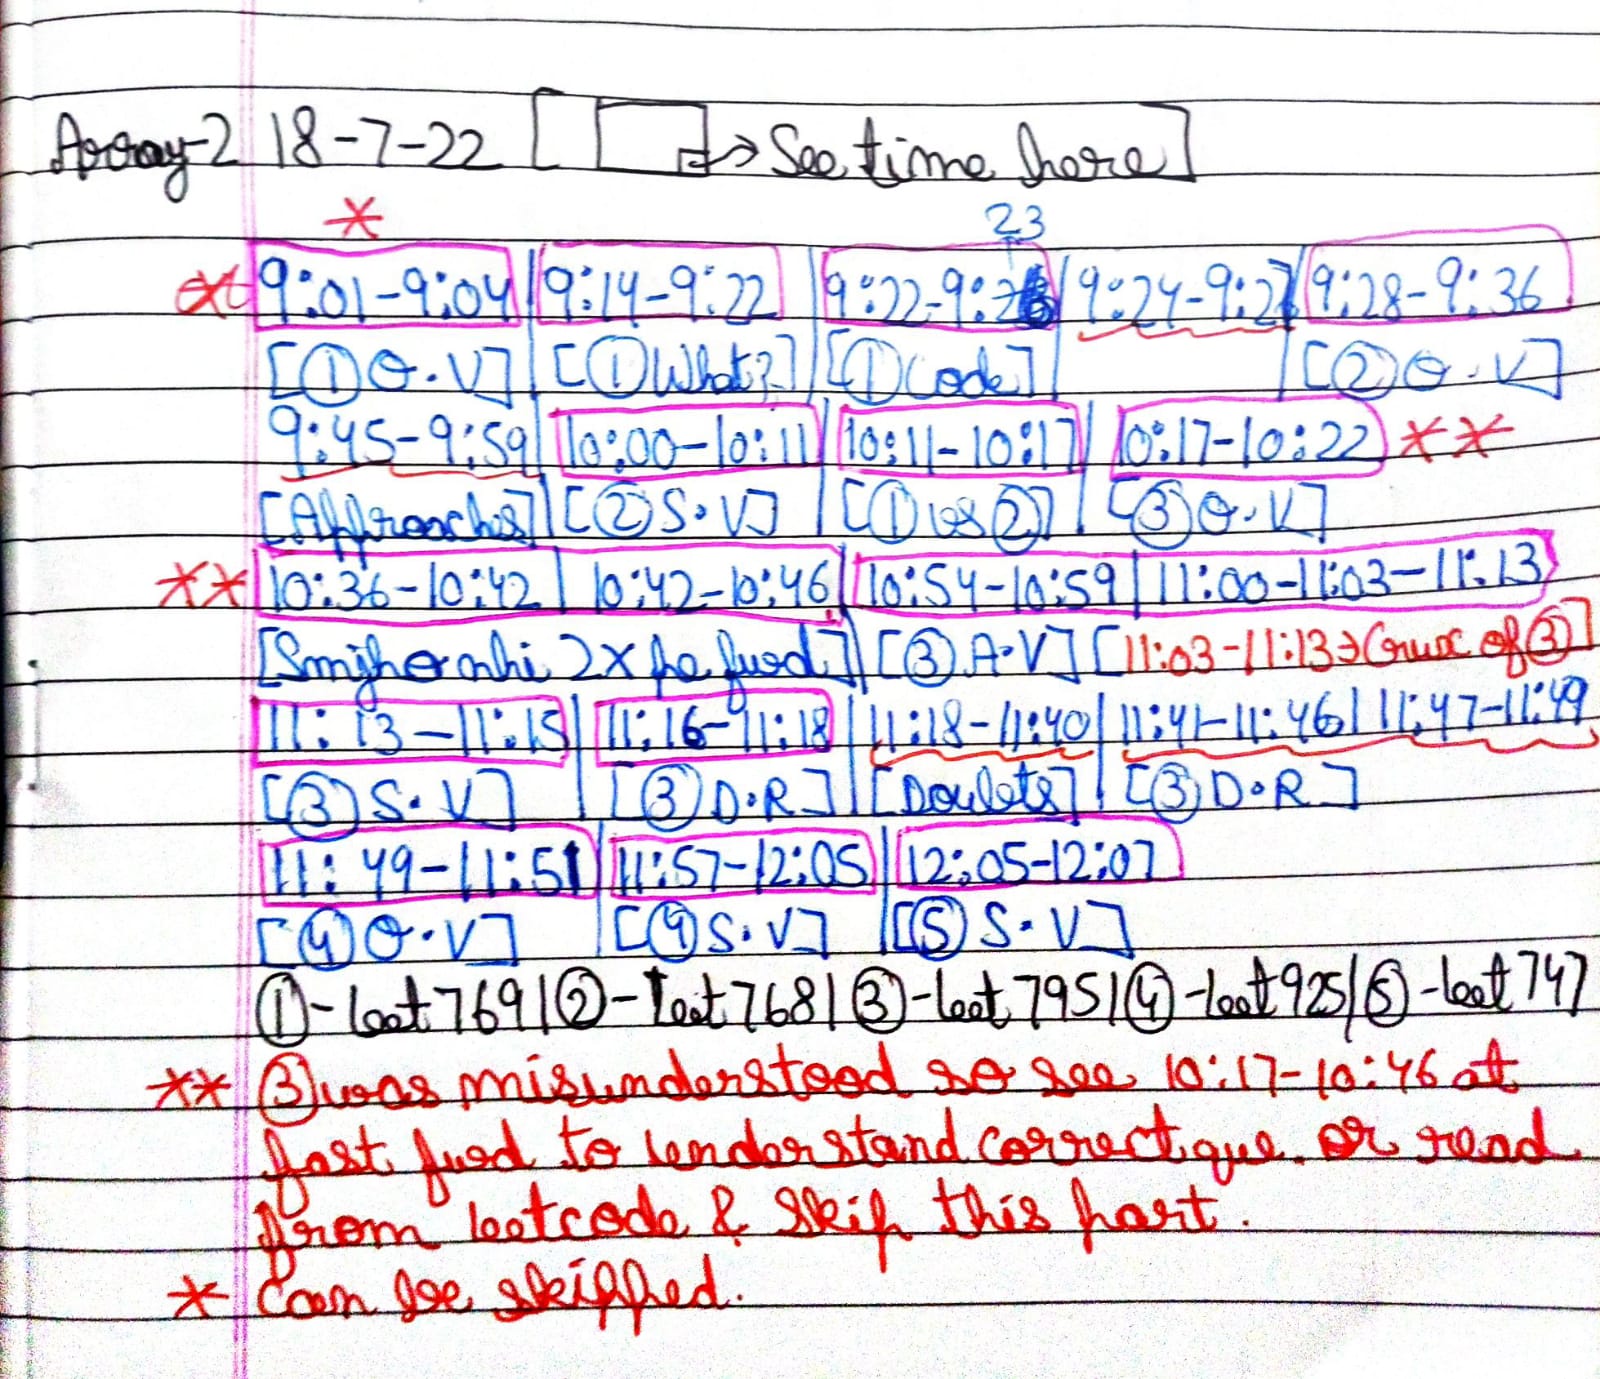 Array-2 18-7-22 [ → See time here]
*
23
9:01-9:04 | 9:14-9:22 | 9:22-9:2 | 9:24-9:27 | 9:28-9:36
[① Q.V] | [① What?] | [① Code] | [② Q.V]
9:45-9:59 | 10:00-10:11 | 10:11-10:17 | 10:17-10:22 **
[Approaches] | [② S.V] | [① vs ②] | [③ Q.V]
** 10:36-10:42 | 10:42-10:46 | 10:54-10:59 | 11:00-11:03-11:13
[Smjho nhi 2x pe fwd.] | [③ A.V] [11:03-11:13→Crux of ③]
11:13-11:15 | 11:16-11:18 | 11:18-11:40 | 11:41-11:46 | 11:47-11:49
[③ S.V] | [③ D.R] | [Doubts] | [③ D.R]
11:49-11:51 | 11:57-12:05 | 12:05-12:07
[④ Q.V] | [④ S.V] | [⑤ S.V]
①-leet 769 | ②-leet 768 | ③-leet 795 | ④-leet 925 | ⑤-leet 747
** ③ was misunderstood so see 10:17-10:46 at
fast fwd to understand correct que. or read
from leetcode & skip this part.
* Can be skipped.